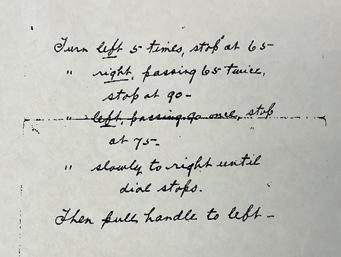 Turn left 5 times, stop at 65-
" right, passing 65 twice,
stop at 90-
" left, passing 90 once, stop
at 75-
" slowly to right until
dial stops.
Then pull handle to left-